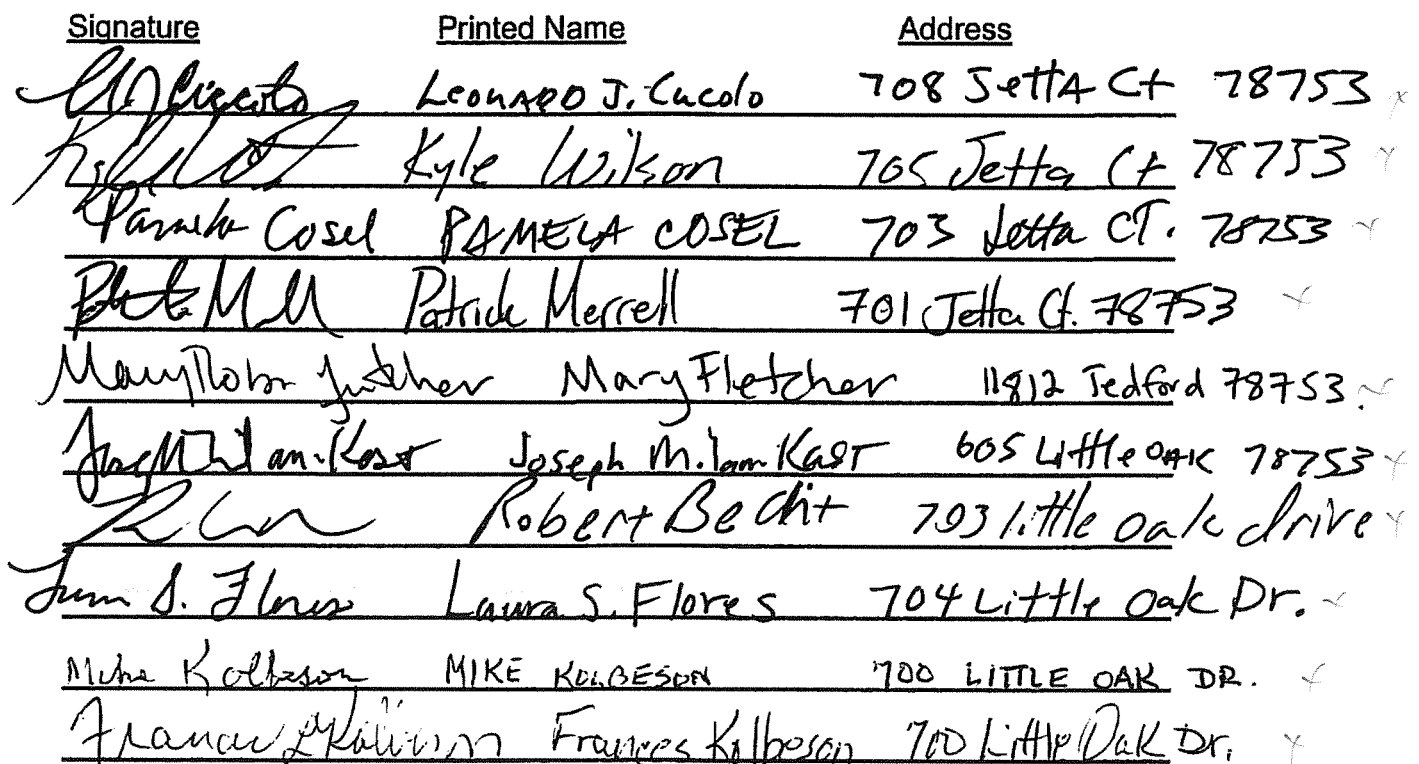 Signature Printed Name Address
Leonard J. Cucolo 708 Jetta Ct 78753
Kyle Wilson 705 Jetta Ct 78753
Pamela Cosel PAMELA COSEL 703 Jetta CT. 78753
Patrick Merrell 701 Jetta Ct. 78753
Mary Fletcher 11812 Jedford 78753
Joseph Milam Kast 605 Little OAK 78753
Robert Becht 703 little oak drive
S. Flores Laura S. Flores 704 Little Oak Dr.
Mike Kolbeson MIKE KOLBESON 700 LITTLE OAK DR.
Frances Kolbeson 700 Little Oak Dr.